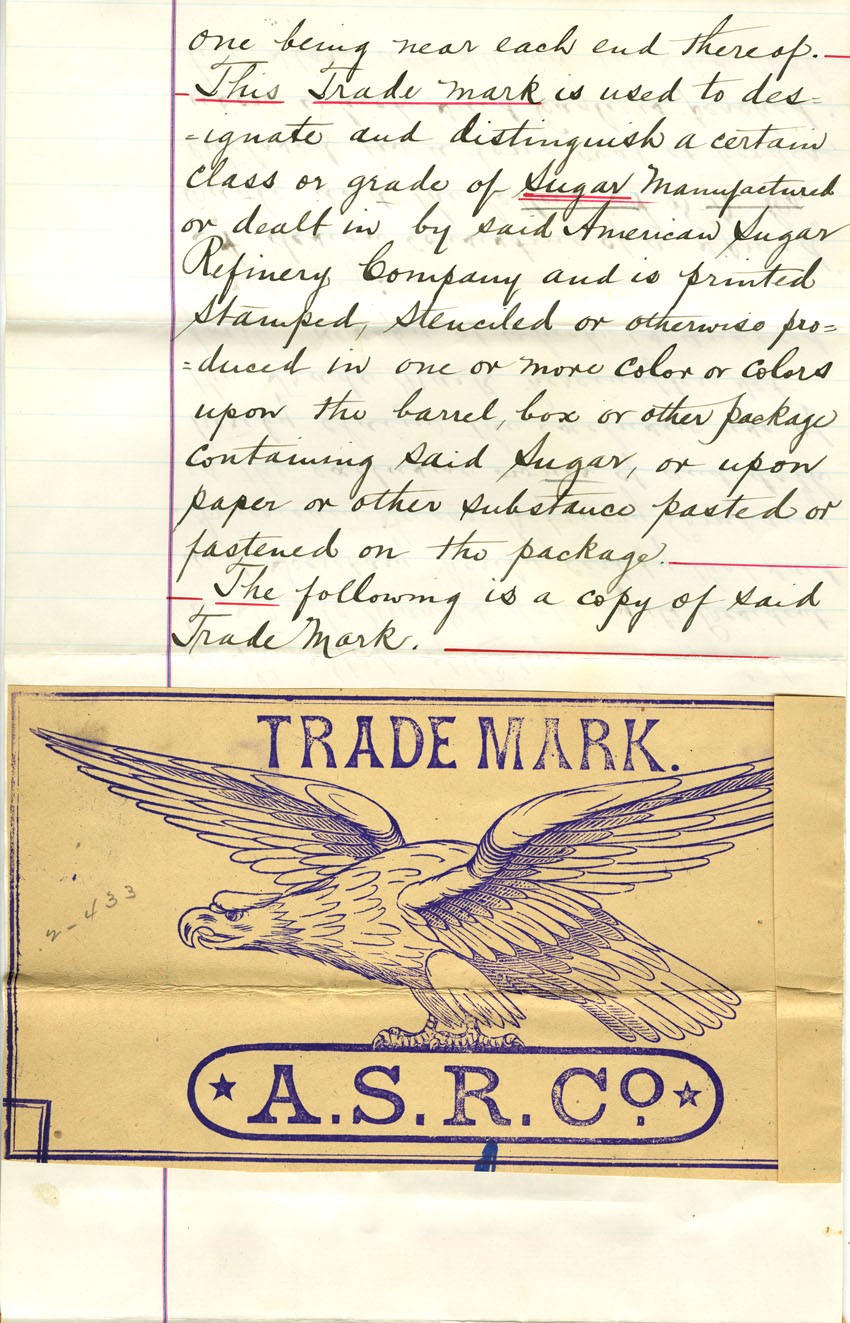 one being near each end thereof.
This Trade Mark is used to des=
=ignate and distinguish a certain
class or grade of Sugar Manufactured
or dealt in by said American Sugar
Refinery Company and is printed
stamped, stenciled or otherwise pro=
=duced in one or more color or colors
upon the barrel, box or other package
containing said Sugar, or upon
paper or other substance pasted or
fastened on the package.
The following is a copy of said
Trade Mark.
TRADE MARK.
2-433
A.S.R.Co.